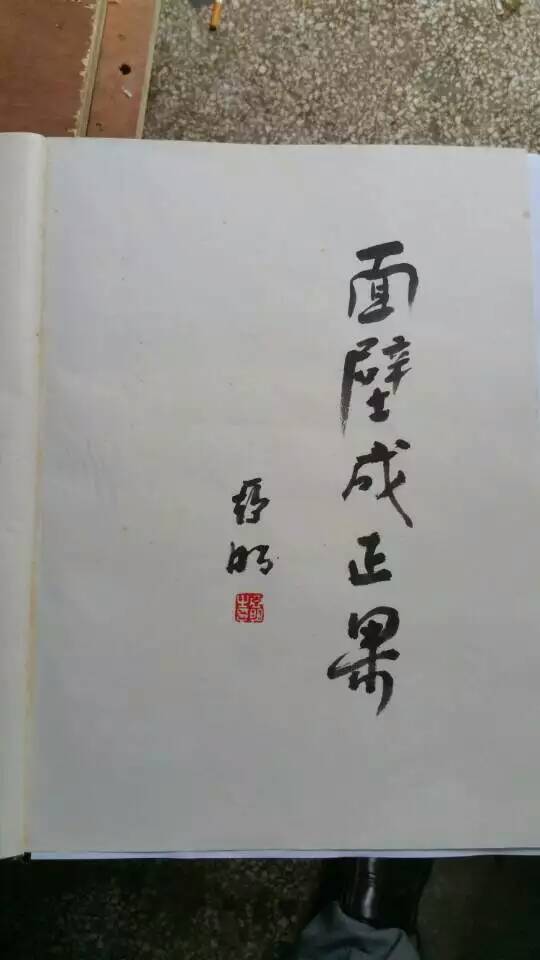 面壁成正果
亞明